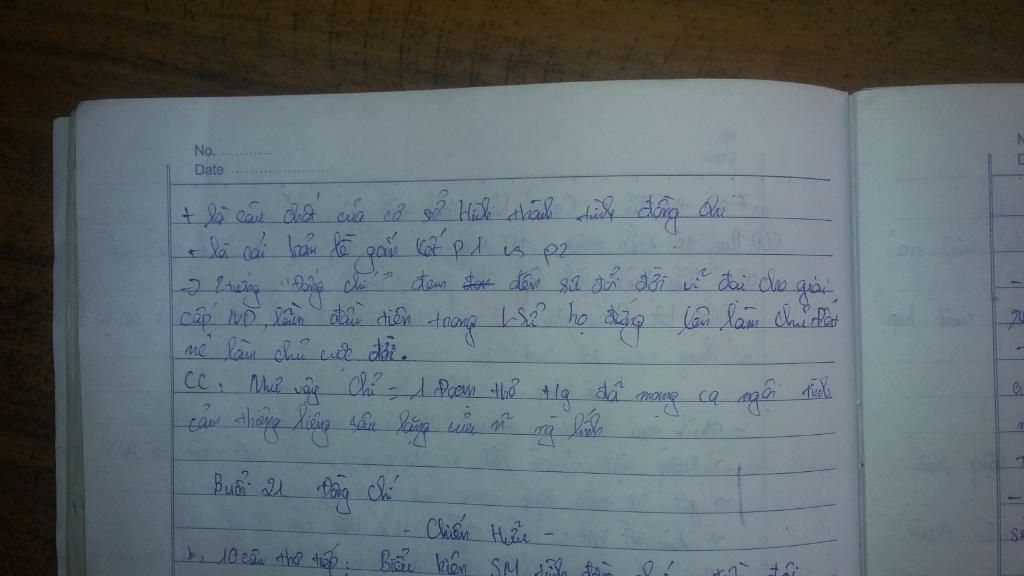 No. ............
Date ........................
+ là câu chốt của cơ sở hình thành tình đồng chí
+ là cái bản lề gắn kết P1 vs P2
=> 2 tiếng "Đồng chí" đem đến sự đổi đời vĩ đại cho giai
cấp ND, lần đầu tiên trong L·Sử họ đứng lên làm chủ đất
nc̉ làm chủ cuộc đời.
CC: Như vậy chỉ = 1 đoạn thơ t/g đã mang ca ngợi tình
cảm thiêng liêng sâu lắng của n~ ng lính
Buổi 21. Đồng chí
- Chính Hữu -
b, 10 câu thơ tiếp: Biểu hiện SM tình